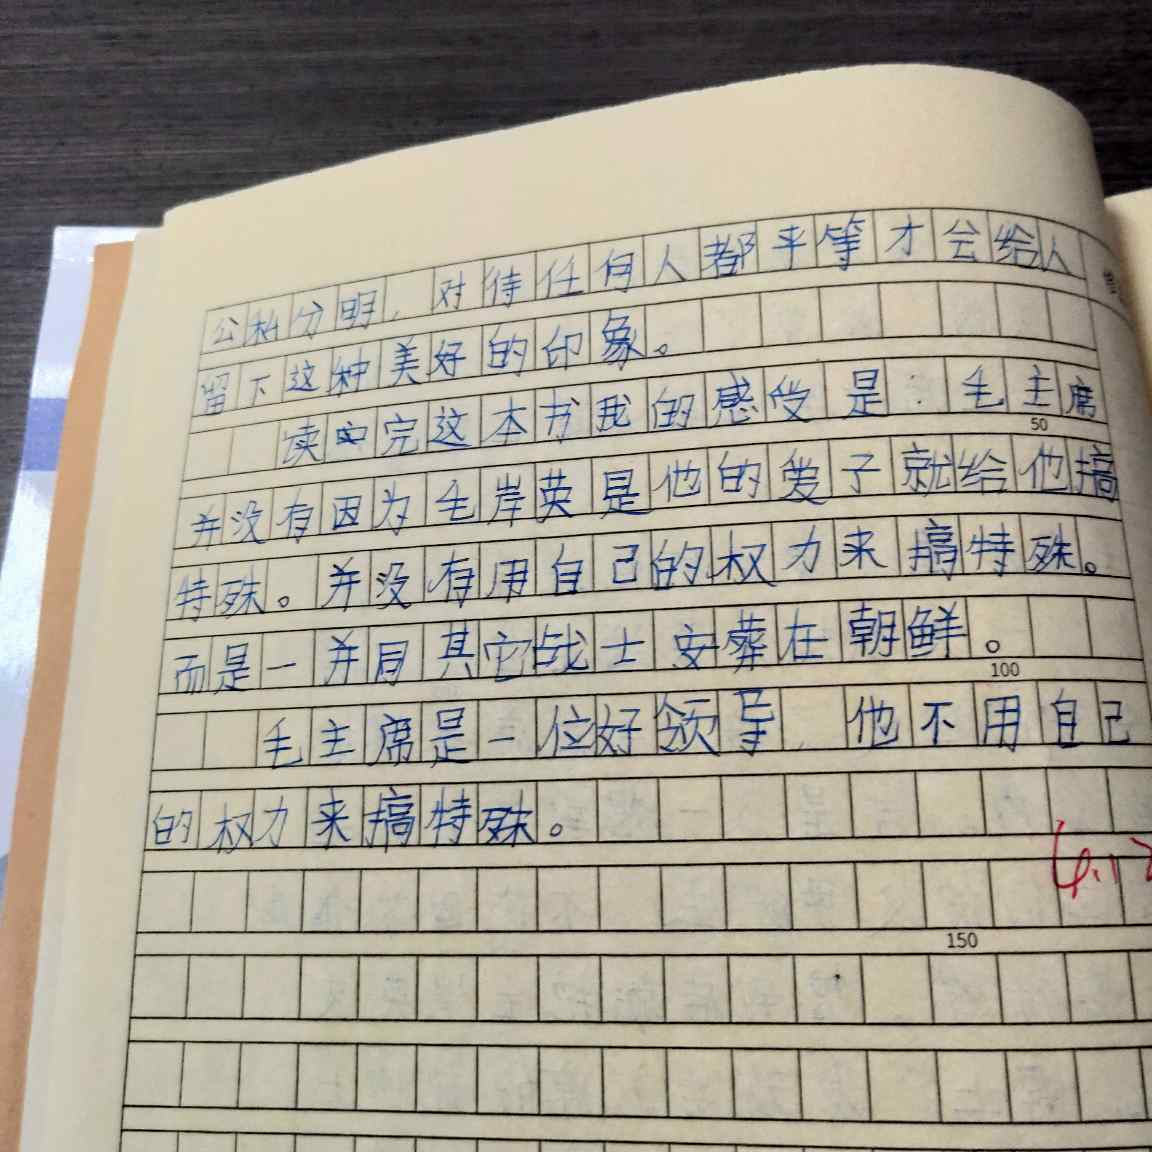 公私分明，对待任何人都平等才会给人
留下这种美好的印象。
读完这本书我的感受是：毛主席
50
并没有因为毛岸英是他的爱子就给他搞
特殊。并没有用自己的权力来搞特殊。
而是一并同其它战士安葬在朝鲜。
100
毛主席是一位好领导，他不用自己
的权力来搞特殊。
150